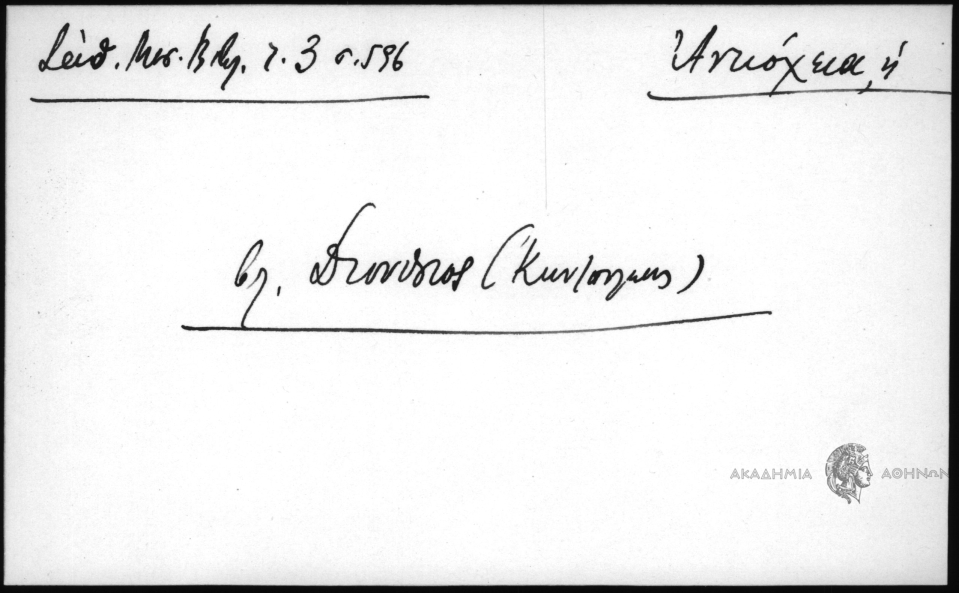 Σάθ. Μεσ. Βιβλ. τ. 3 σ. 596
Ἀντιόχεια, ἡ
βλ. Διονύσιος (Κων/πόλεως)
ΑΚΑΔΗΜΙΑ ΑΘΗΝΩΝ